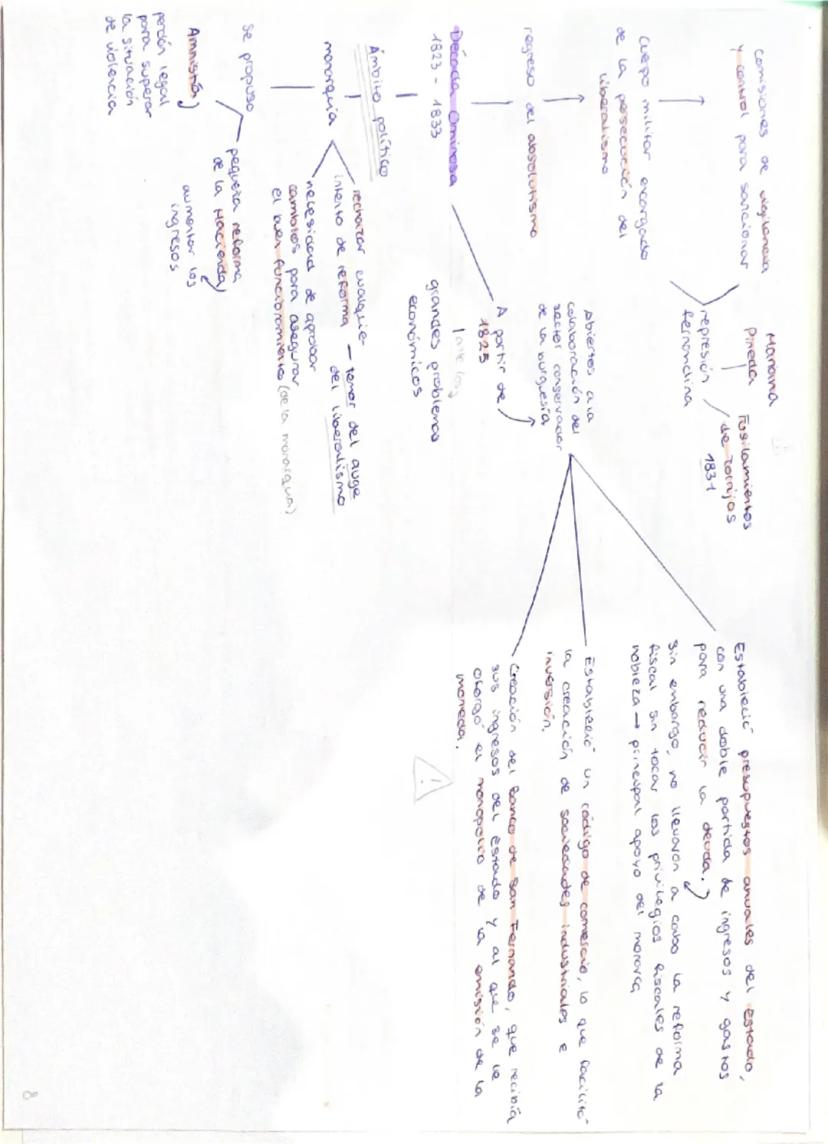 comisiones de vigilancia
y control para sancionar
cuerpo militar encargado
de la persecución del
liberalismo
regreso del absolutismo
Década Ominosa
1823 - 1833
Ámbito político
monarquía
se propuso
Amnistía
perdón legal
para superar
la situación
de violencia
pequeña reforma
de la Hacienda
aumentar los
ingresos
rechazar cualquier
intento de reforma → temor del auge
del liberalismo
necesidad de aprobar
cambios para asegurar
el buen funcionamiento (de la monarquía)
Mariana
Pineda
represión
fernandina
Fusilamientos
de Torrijos
1831
A partir de
1825
ante los
grandes problemas
económicos
abiertos a la
colaboración del
sector conservador
de la burguesía
Estableció presupuestos anuales del Estado,
con una doble partida de ingresos y gastos
para reducir la deuda.
Sin embargo, no llevaron a cabo la reforma
fiscal sin tocar los privilegios fiscales de la
nobleza → principal apoyo del monarca
Estableció un código de comercio, lo que facilitó
la creación de sociedades industriales e
inversión.
Creación del Banco de San Fernando, que recibía
sus ingresos del Estado y al que se le
otorgó el monopolio de la emisión de la
moneda.
!
8